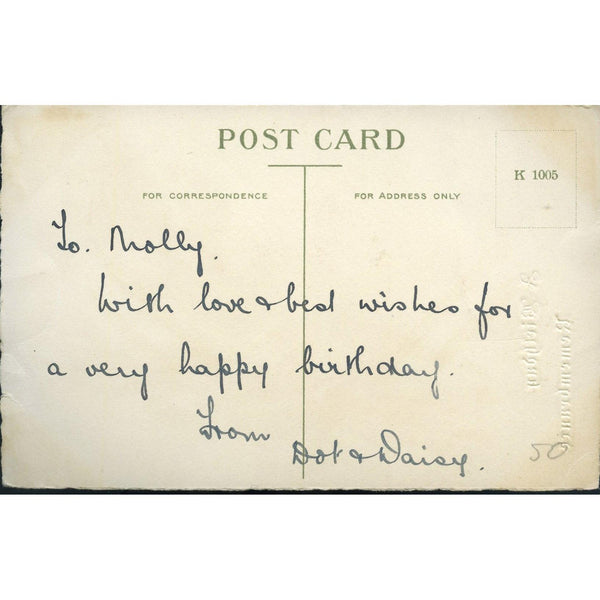 POST CARD
K 1005
FOR CORRESPONDENCE
FOR ADDRESS ONLY
To. Molly.
With love & best wishes for
a very happy birthday.
From
Dot & Daisy.
50